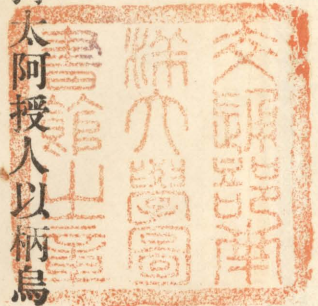 交通部南
洋大學圖
書館之章
太阿授人以柄烏